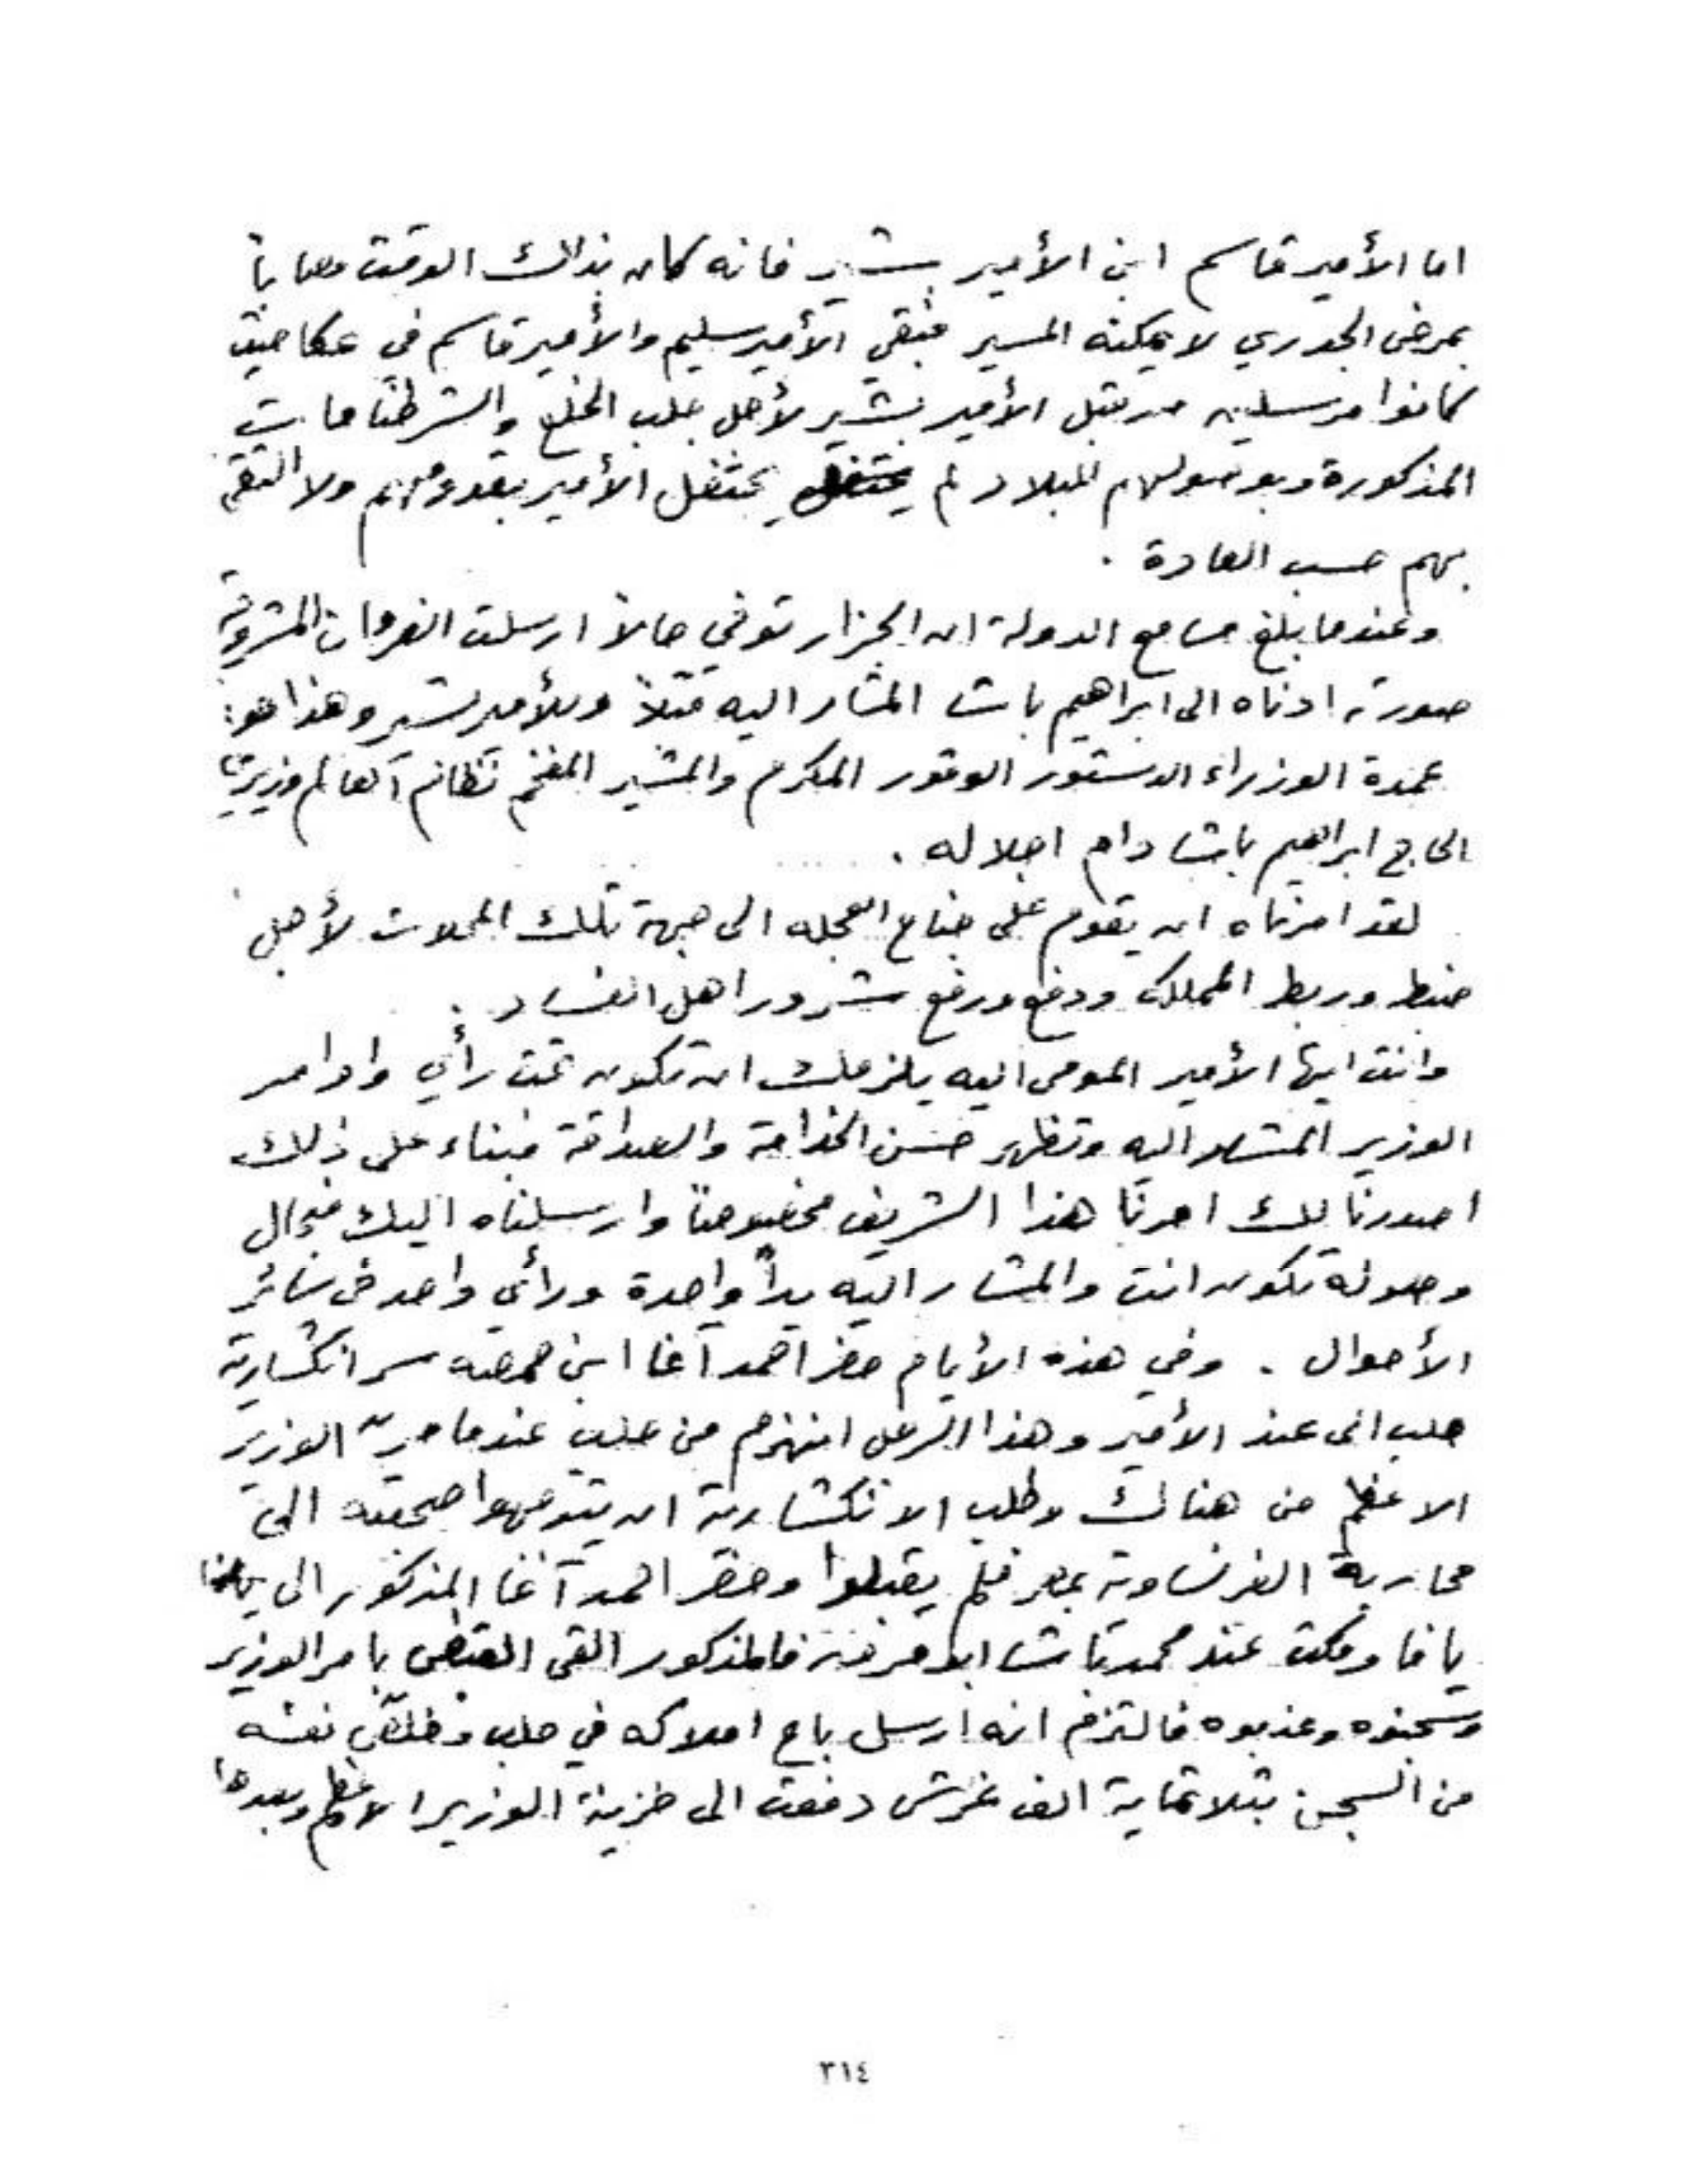 اما الأمير قاسم ابن الأمير بشير فانه كان بذلك الوقت مصاباً
بمرض الجدري لا يمكنه المسير فبقي الأمير سليم والأمير قاسم في عكا حيث
كانوا مرسلين من قبل الأمير بشير لأجل جلب الخلع والشرطنامات
المذكورة وبوصولهم للبلاد لم يحتفل الأمير بقدومهم ولا التقى
بهم حسب العادة .
وعندما بلغ مسامع الدولة ان الجزار توفي حالاً ارسلت الفرمان المشروحة
صورته ادناه الى ابراهيم باشا المشار اليه قبلاً وللأمير بشير وهذا هو :
عمدة الوزراء الدستور الوقور المكرم والمشير المفخم نظام العالم وزيرنا
الحاج ابراهيم باشا دام اجلاله .
لقد امرناه ان يقوم على جناح العجله الى جهة تلك المحلات لأجل
ضبط وربط المملكة ودفع ورفع شرور اهل الفساد .
وانت ايها الأمير المومى اليه يلزملك ان تكون تحت رأي واوامر
الوزير المشار اليه وتظهر حسن الخدامة والصداقة فبناء على ذلك
اصدرنا لك امرنا هذا الشريف مخصوصاً وارسلناه اليك فبحال
وصوله تكون انت والمشار اليه يداً واحدة ورأي واحد في سائر
الأحوال . وفي هذه الأيام حضر احمد آغا ابن حمصه سر انكشارية
حلب الى عند الأمير وهذا الرجل انهزم من حلب عندما مر الوزير
الاعظم من هناك وطلب الانكشارية ان يتوجهوا صحبته الى
محاربة الفرنساوية بمصر فلم يقبلوا وحضر احمد آغا المذكور الى
يافا ومكث عند محمد باشا ابو مرق فالمذكور القى القبض بامر الوزير
وسجنوه وعذبوه فالتزم انه ارسل باع املاكه في حلب وخلّص نفسه
من السجن بتلاتماية الف غرش دفعت الى خزينة الوزير الاعظم وبعدها
٣١٤